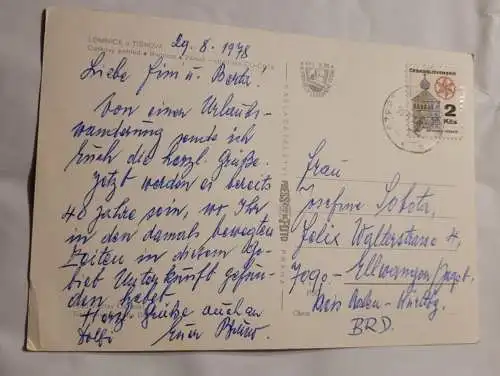 LOMNICE u TIŠNOVA
Celkový pohled • 
29.8.1978
Liebe Fini u. Berta!
Von einer Urlaubs-
wanderung sende ich
Euch die herzl. Grüße.
Jetzt werden es bereits
40 Jahre sein, wo Ihr
in den damals bewegten
Zeiten in diesem Ge-
biet Unterkunft gefun-
den habet.
Herzl. Grüße auch an
Euer Bruno.
PRAHA
ČESKOSLOVENSKO
2
Kčs
Frau
Josefine Sobota,
Felix Walterstrasse 4,
7090. Ellwangen/Jagst.
Kreis Aalen-Württbg.
BRD.